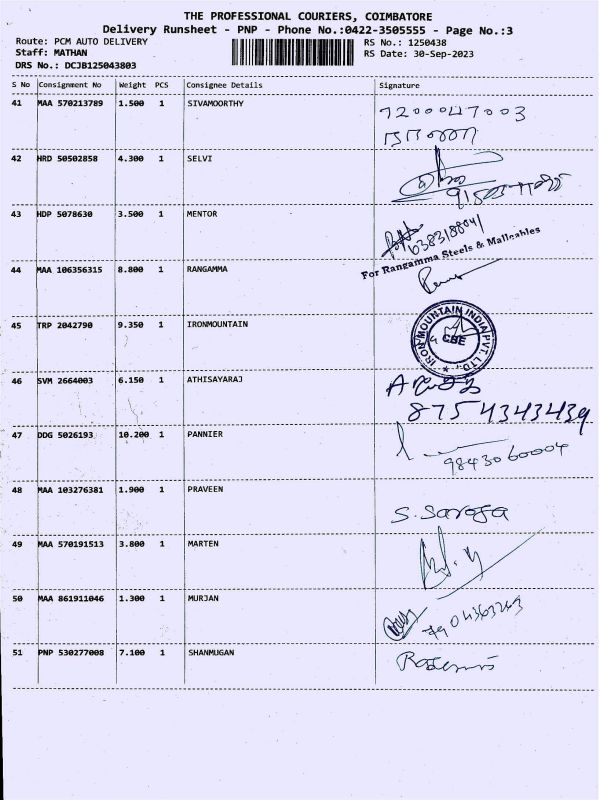 THE PROFESSIONAL COURIERS, COIMBATORE
Delivery Runsheet - PNP - Phone No.:0422-3505555 - Page No.:3
Route: PCM AUTO DELIVERY RS No.: 1250438
Staff: MATHAN RS Date: 30-Sep-2023
DRS No.: DCJB125043803
S No Consignment No Weight PCS Consignee Details Signature
41 MAA 570213789 1.500 1 SIVAMOORTHY
42 HRD 50502858 4.300 1 SELVI
43 HDP 5078630 3.500 1 MENTOR
6383188041
For Rangamma Steels & Malleables
44 MAA 106356315 8.800 1 RANGAMMA
45 TRP 2042790 9.350 1 IRONMOUNTAIN
IRON MOUNTAIN INDIA PVT. LTD.
CBE
46 SVM 2664003 6.150 1 ATHISAYARAJ
8754343439
47 DDG 5026193 10.200 1 PANNIER
9843060004
48 MAA 103276381 1.900 1 PRAVEEN
S. Saroja
49 MAA 570191513 3.800 1 MARTEN
50 MAA 861911046 1.300 1 MURJAN
51 PNP 530277008 7.100 1 SHANMUGAN